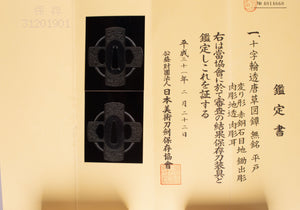 鑑定書
一、十字輪透唐草図鐔 無銘 平戸
変り形 赤銅石目地 鋤出彫
肉彫地透 肉彫耳
右は當協會に於て審査の結果保存刀装具と
鑑定しこれを証する
平成三十一年 二月二十二日
公益財団法人 日本美術刀剣保存協會